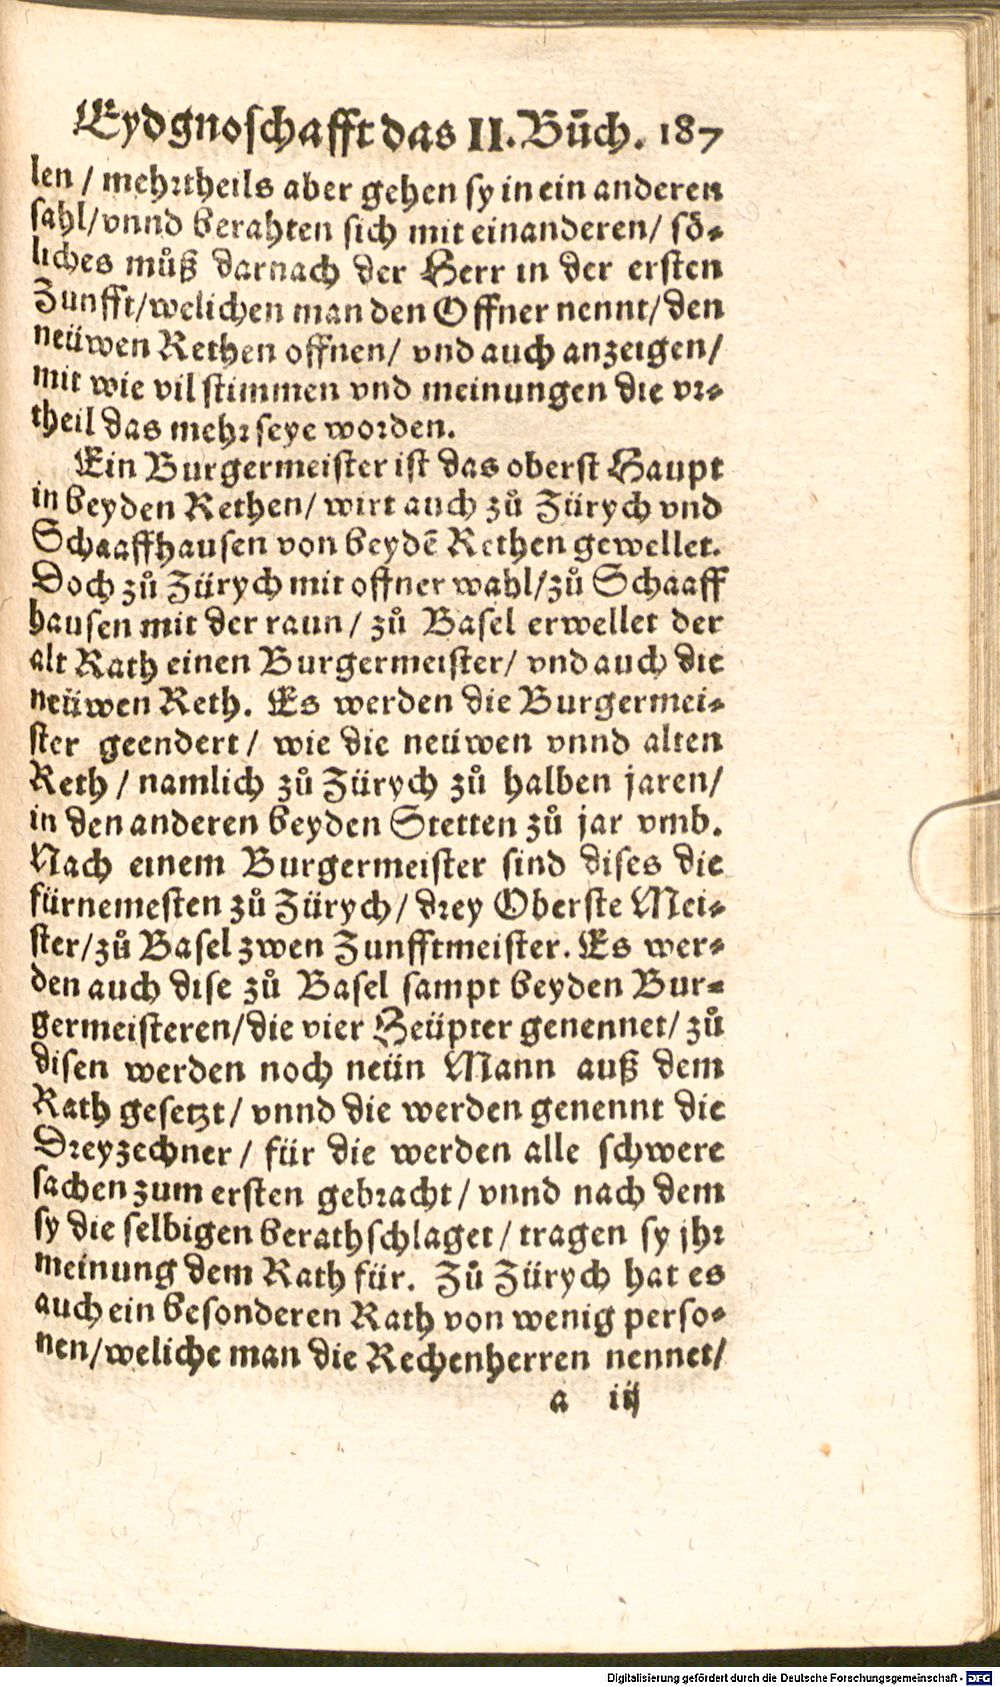 Eydgnoschafft das II. Bůch. 187
len / mehrtheils aber gehen sy in ein anderen
sahl/ vnnd berahten sich mit einanderen/ sö-
liches můß darnach der Herr in der ersten
Zunfft/ welichen man den Offner nennt/ den
neüwen Rethen offnen/ vnd auch anzeigen/
mit wie vil stimmen vnd meinungen die vr-
theil das mehr seye worden.
Ein Burgermeister ist das oberst Haupt
in beyden Rethen/ wirt auch zů Zürych vnd
Schaaffhausen von beydē Rethen gewellet.
Doch zů Zürych mit offner wahl/ zů Schaaff
hausen mit der raun / zů Basel erwellet der
alt Rath einen Burgermeister/ vnd auch die
neüwen Reth. Es werden die Burgermei-
ster geendert / wie die neüwen vnnd alten
Reth / namlich zů Zürych zů halben jaren/
in den anderen beyden Stetten zů jar vmb.
Nach einem Burgermeister sind dises die
fürnemesten zů Zürych/ drey Oberste Mei-
ster/ zů Basel zwen Zunfftmeister. Es wer-
den auch dise zů Basel sampt beyden Bur-
germeisteren/ die vier Heüpter genennet/ zů
disen werden noch neün Mann auß dem
Rath gesetzt / vnnd die werden genennt die
Dreyzechner / für die werden alle schwere
sachen zum ersten gebracht / vnnd nach dem
sy die selbigen berathschlaget / tragen sy jhr
meinung dem Rath für. Zů Zürych hat es
auch ein besonderen Rath von wenig perso-
nen/ weliche man die Rechenherren nennet/
a iij
Digitalisierung gefördert durch die Deutsche Forschungsgemeinschaft - DFG